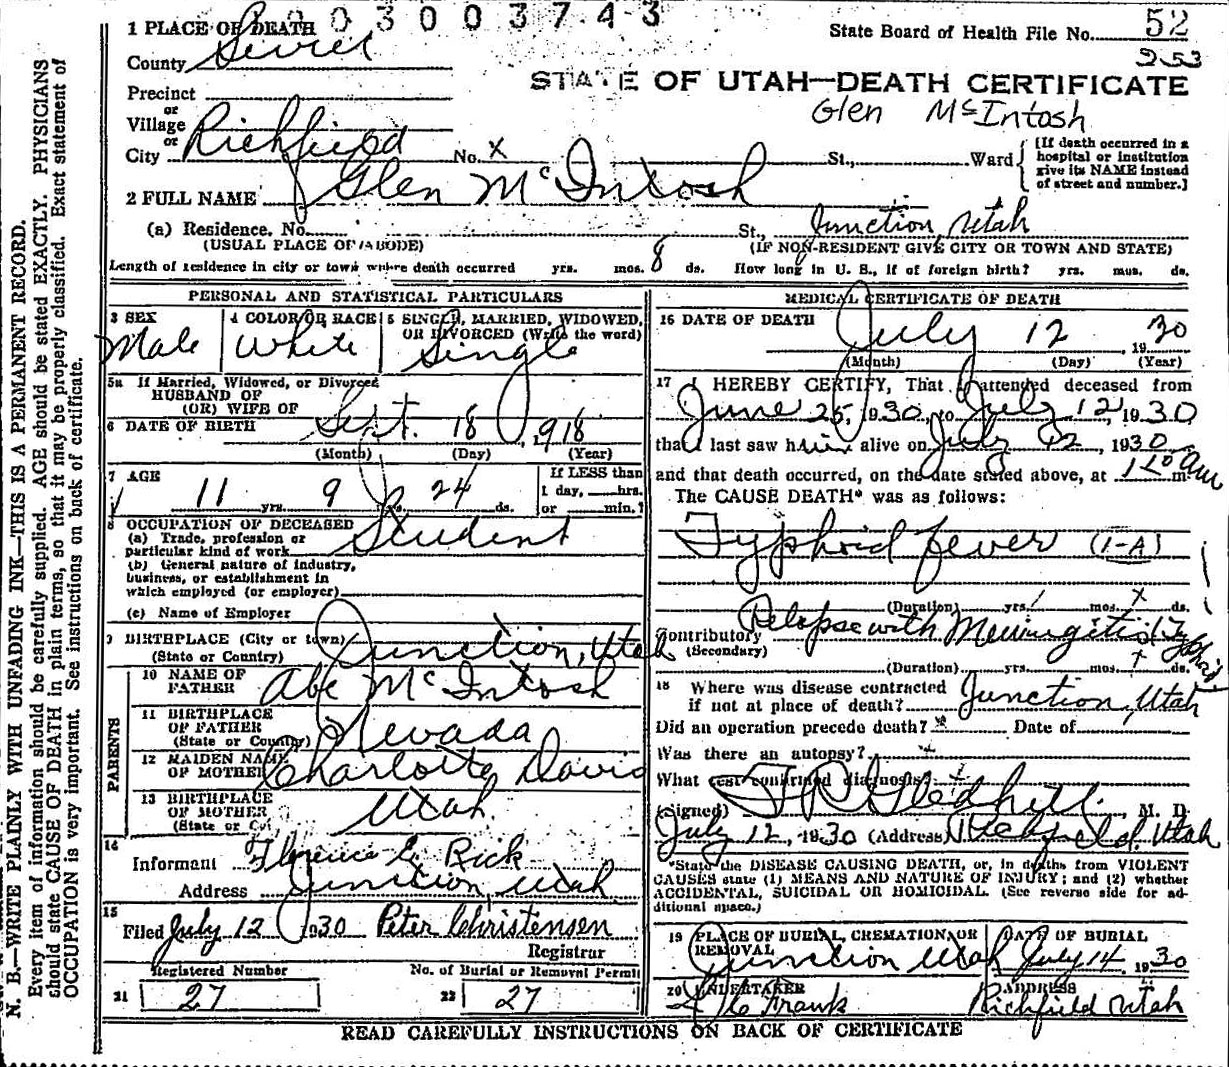 003003743
1 PLACE OF DEATH
State Board of Health File No. 52
253
County Sevier
STATE OF UTAH—DEATH CERTIFICATE
Precinct
Glen McIntosh
or
Village
or
City Richfield No. X St., Ward
[If death occurred in a hospital or institution give its NAME instead of street and number.]
2 FULL NAME Glen McIntosh
(a) Residence. No. St., Junction, Utah
(USUAL PLACE OF ABODE) (IF NON-RESIDENT GIVE CITY OR TOWN AND STATE)
Length of residence in city or town where death occurred yrs. mos. 8 ds. How long in U. S., if of foreign birth? yrs. mos. ds.
PERSONAL AND STATISTICAL PARTICULARS
3 SEX Male
4 COLOR OR RACE White
5 SINGLE, MARRIED, WIDOWED, OR DIVORCED (Write the word) Single
5a If Married, Widowed, or Divorced
HUSBAND OF
(OR) WIFE OF
6 DATE OF BIRTH Sept. 18, 1918
(Month) (Day) (Year)
7 AGE 11 yrs. 9 24 ds.
If LESS than
1 day, hrs.
or min.?
8 OCCUPATION OF DECEASED
(a) Trade, profession or
particular kind of work Student
(b) General nature of industry,
business, or establishment in
which employed (or employer)
(c) Name of Employer
9 BIRTHPLACE (City or town)
(State or Country) Junction, Utah
PARENTS
10 NAME OF
FATHER Abe McIntosh
11 BIRTHPLACE
OF FATHER
(State or Country) Nevada
12 MAIDEN NAME
OF MOTHER Charlotte Davis
13 BIRTHPLACE
OF MOTHER Utah.
14
Informant Florence E. Rick
Address Junction Utah
15
Filed July 12 1930 Peter Christensen
Registrar
Registered Number
No. of Burial or Removal Permit
21 27
22 27
MEDICAL CERTIFICATE OF DEATH
16 DATE OF DEATH July 12, 1930
(Month) (Day) (Year)
17 I HEREBY CERTIFY, That I attended deceased from
June 25, 1930, to July 12, 1930
that I last saw him alive on July 12, 1930
and that death occurred, on the date stated above, at am
The CAUSE DEATH* was as follows:
Typhoid fever (1-A)
(Duration) yrs. mos. ds.
Contributory Relapse with Meningitis (Typhoid)
(Secondary)
(Duration) yrs. mos. ds.
18 Where was disease contracted
if not at place of death? Junction, Utah
Did an operation precede death? Date of
Was there an autopsy?
What test confirmed diagnosis?
(Signed) T R Gledhill. M. D.
July 12, 1930 (Address) Richfield, Utah
*State the DISEASE CAUSING DEATH, or, in deaths from VIOLENT
CAUSES state (1) MEANS AND NATURE OF INJURY; and (2) whether
ACCIDENTAL, SUICIDAL OR HOMICIDAL. (See reverse side for additional space.)
19 PLACE OF BURIAL, CREMATION, OR REMOVAL Junction Utah
DATE OF BURIAL July 14 1930
20 UNDERTAKER
ADDRESS Richfield Utah
READ CAREFULLY INSTRUCTIONS ON BACK OF CERTIFICATE
N. B.—WRITE PLAINLY WITH UNFADING INK—THIS IS A PERMANENT RECORD.
Every item of information should be carefully supplied. AGE should be stated EXACTLY. PHYSICIANS
should state CAUSE OF DEATH in plain terms, so that it may be properly classified. Exact statement of
OCCUPATION is very important. See instructions on back of certificate.